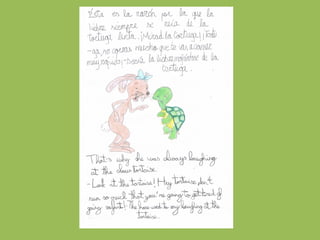 Esta es la razón por la que la
liebre siempre se reía de la
tortuga lenta. ¡Mirad la tortuga! ¡Tortu
-ga no corras mucho que te vas a cansar
muy rápido!-Decía la liebre riéndose de la
tortuga.
That's why he was always laughing
at the slow tortoise.
-Look at the tortoise! Hey tortoise, don't
run so quick that you're going to get tired of
going so fast!-The hare used to say laughing at the
tortoise.